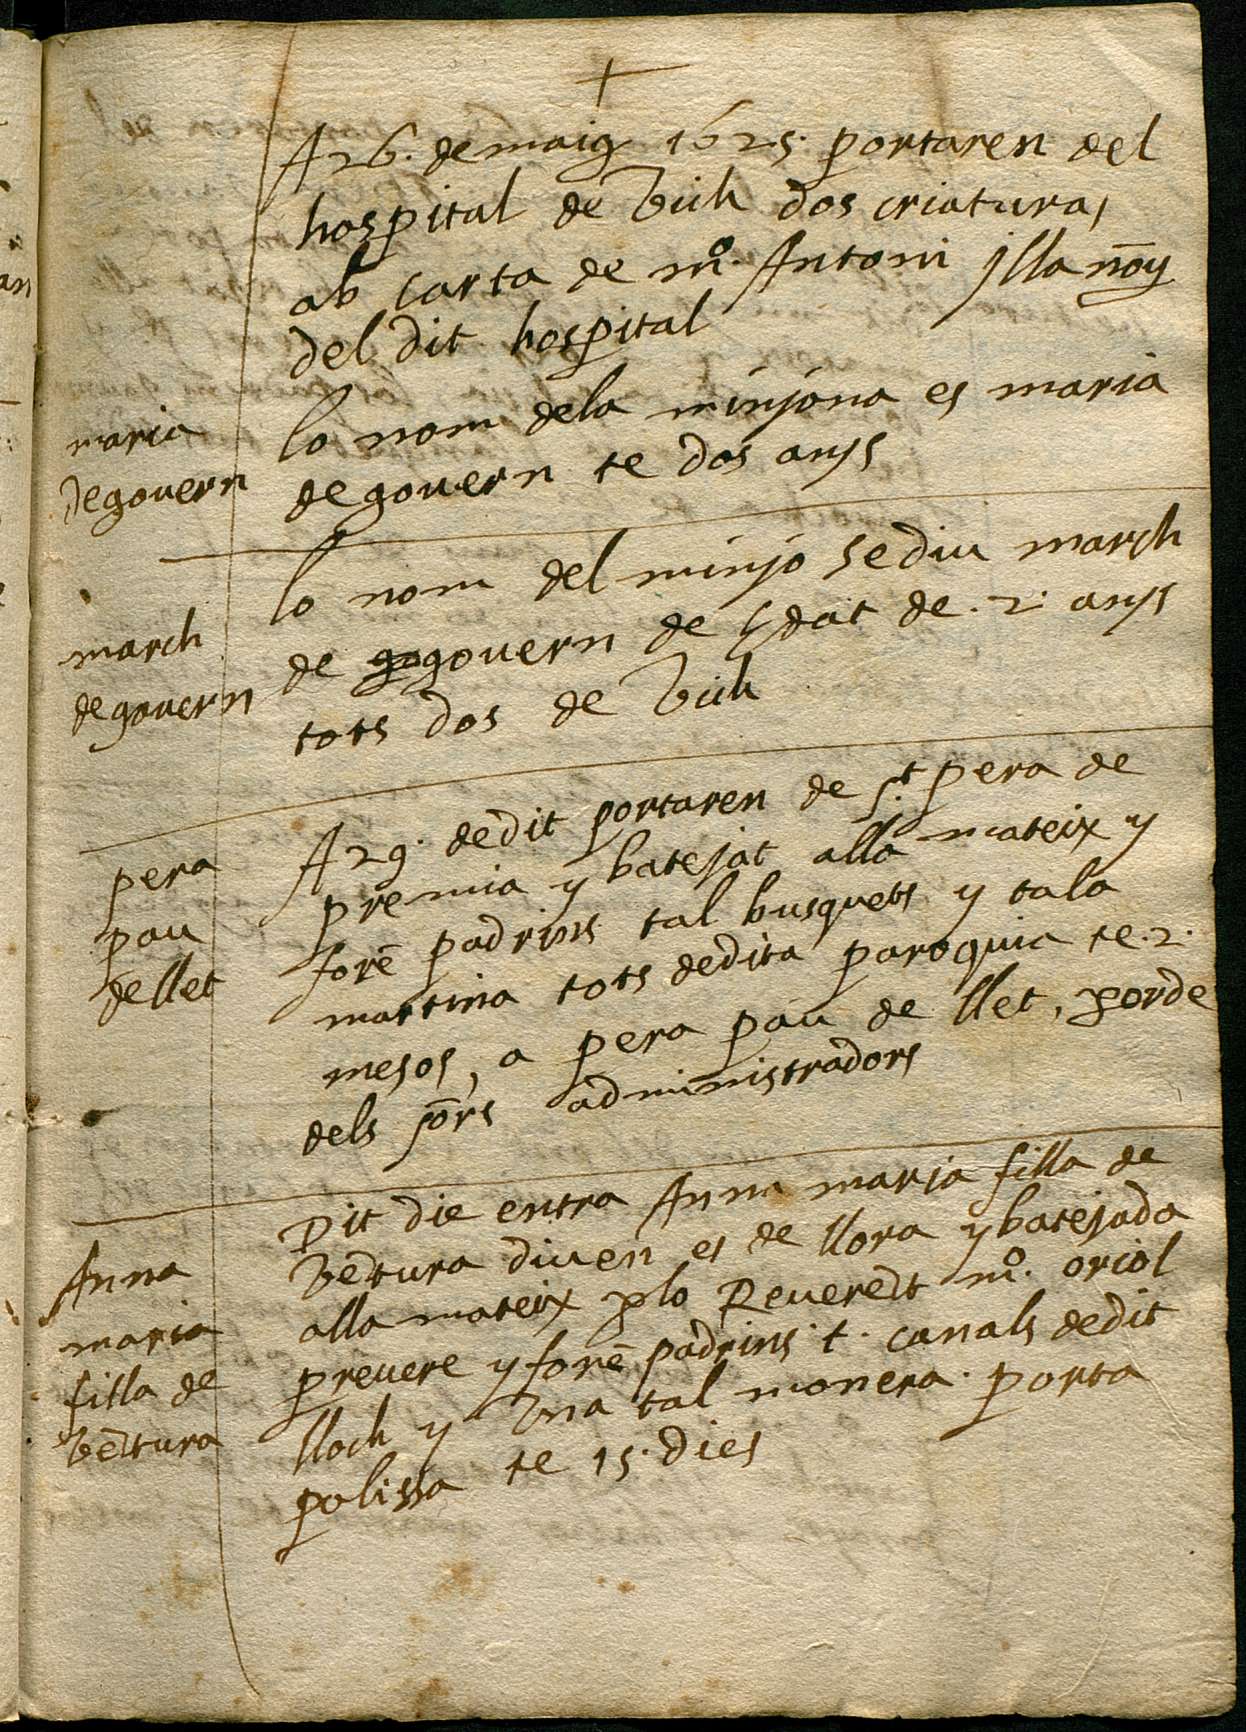 +
A 26. de maig 1625. portaren del
hospital de Vich dos criaturas
ab carta de m.º Antoni Jlla
del dit hospital
maria
de govern
lo nom dela minjona es maria
de govern te dos anys
march
de govern
lo nom del minjo se diu march
de go govern de ydat de .2. anys
tots dos de Vich
pera
pau
de llet
A 29. de dit portaren de s.t pera de
premia y batejat alla mateix y
forē padrins tal busquets y tala
martina tots de dita paroquia te .2.
mesos, a pera pau de llet, per orde
dels sōrs administradors
Anna
maria
filla de
vētura
Dit die entra Anna maria filla de
vētura diuen es de llora y batejada
alla mateix plo Reuerēt m.º oriol
preuere y forē padrins t. canals de dit
lloch y Vna tal monera. porta
polissa te 15. dies